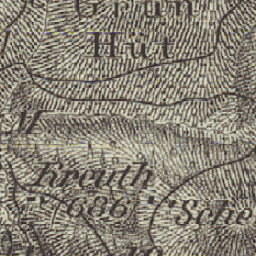 Grün
Hüt
Kreuth
686
Sche